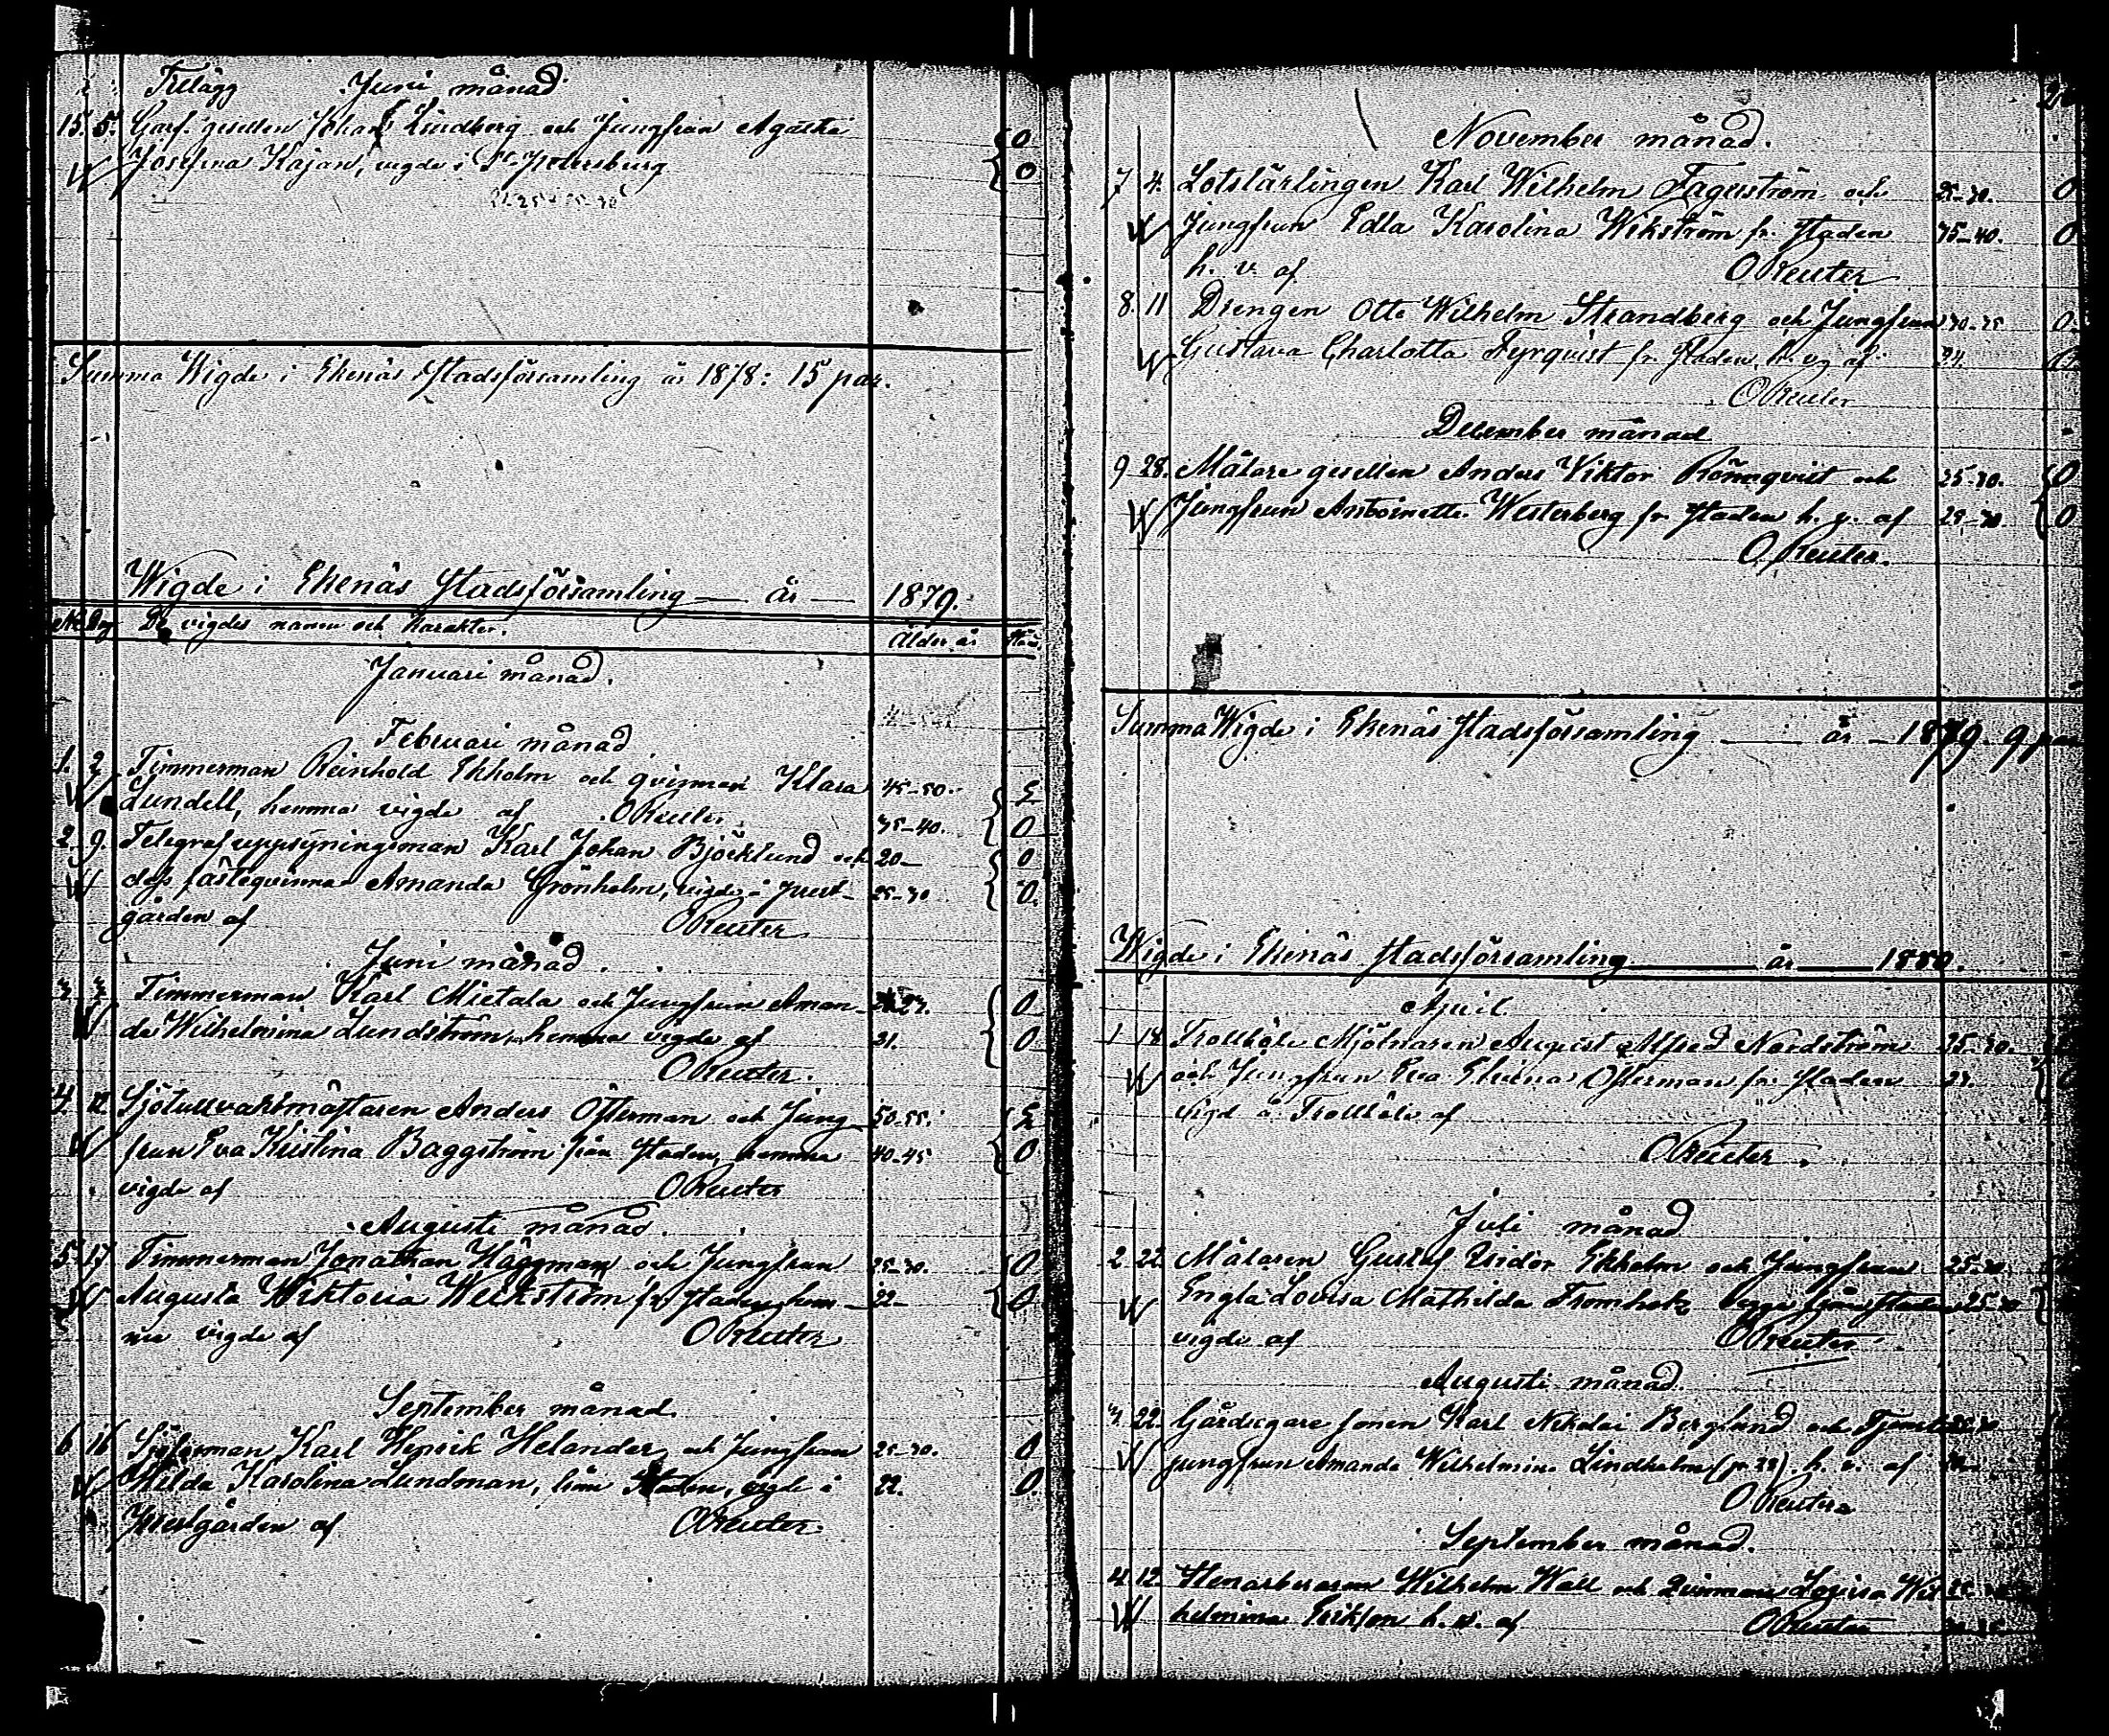 Tillägg Juni månad.
15. 5. Garf. gesellen Johan Lindberg och Jungfrun Agatha 0
Josefina Kajan, vigde i St Petersburg 0
Summa Wigde i Ekenäs Stadsförsamling år 1878: 15 par.
Wigde i Ekenäs Stadsförsamling — år — 1879.
No Dag De vigdes namn och karakter. Ålder år
Januari månad.
Februari månad
1. 2 Timmerman Reinhold Ekholm och qvinnan Klara 45-50.
Lundell, hemma vigde af OReuter. 35-40. 0
2. 9. Telegrafuppsyningsman Karl Johan Björklund och 20— 0
dess fästeqvinna Amanda Grönholm, vigde i Prest- 25-30 0.
gården af OReuter
Juni månad.
3. 3. Timmerman Karl Mietala och Jungfrun Aman- 0
da Wilhelmina Lundström, hemma vigde af 21. 0
OReuter.
4. 12 Sjötullvaktmästaren Anders Österman och Jung- 50-55.
frun Eva Kristina Baggström från Staden, hemma 40-45 0
vigde af OReuter
Augusti månad.
5. 17 Timmerman Jonathan Häggman och Jungfrun 25-30. 0
Augusta Wiktoria Weckström fr. Staden, hem- 22- 0
ma vigde af OReuter
September månad.
6 16 Karl Henrik Helander och Jungfrun 25-30. 0
Hilda Karolina Lundman, från Staden, vigde i 22. 0.
Prestgården af OReuter.
November månad.
7 4. Lotslärlingen Karl Wilhelm Fagerström och 25-30. 0
Jungfrun Edla Karolina Wikström fr. Staden 35-40. 0
h. v. af OReuter
8. 11 Drengen Otto Wilhelm Strandberg och Jungfrun 30-35 0.
Gustava Charlotta Fyrqvist fr. Staden, h. v. af 24.
OReuter
December månad
9 28. Målare gesellen Anders Viktor Rönnqvist och 25-30. 0
Jungfrun Antoinette Westerberg fr. Staden h. v. af 29-30. 0
O. Reuter.
Summa Wigde i Ekenäs Stadsförsamling — år — 1879. 9 par
Wigde i Ekenäs Stadsförsamling — år — 1880.
April.
1 18 Trollböle Mjölnaren August Alfred Nordström 25-30.
och Jungfrun Eva Elvina Österman fr. Staden
vigd å Trollböle af
OReuter.
Juli månad
2 22 Målaren Gustaf Isidor Ekholm och Jungfrun 25-30
Engla Lovisa Mathilda Fromholz begge från Staden 25-30
vigde af OReuter.
Augusti månad.
3. 22. Gårdsegare sonen Karl Nikolai Berglund och
jungfrun Amanda Wilhelmina Lindholm h. v. af
OReuter
September månad.
4 12. Stenarbetaren Wilhelm Wall och Qvinnan Lovisa Wil-
helmina Erikson h. v. af OReuter